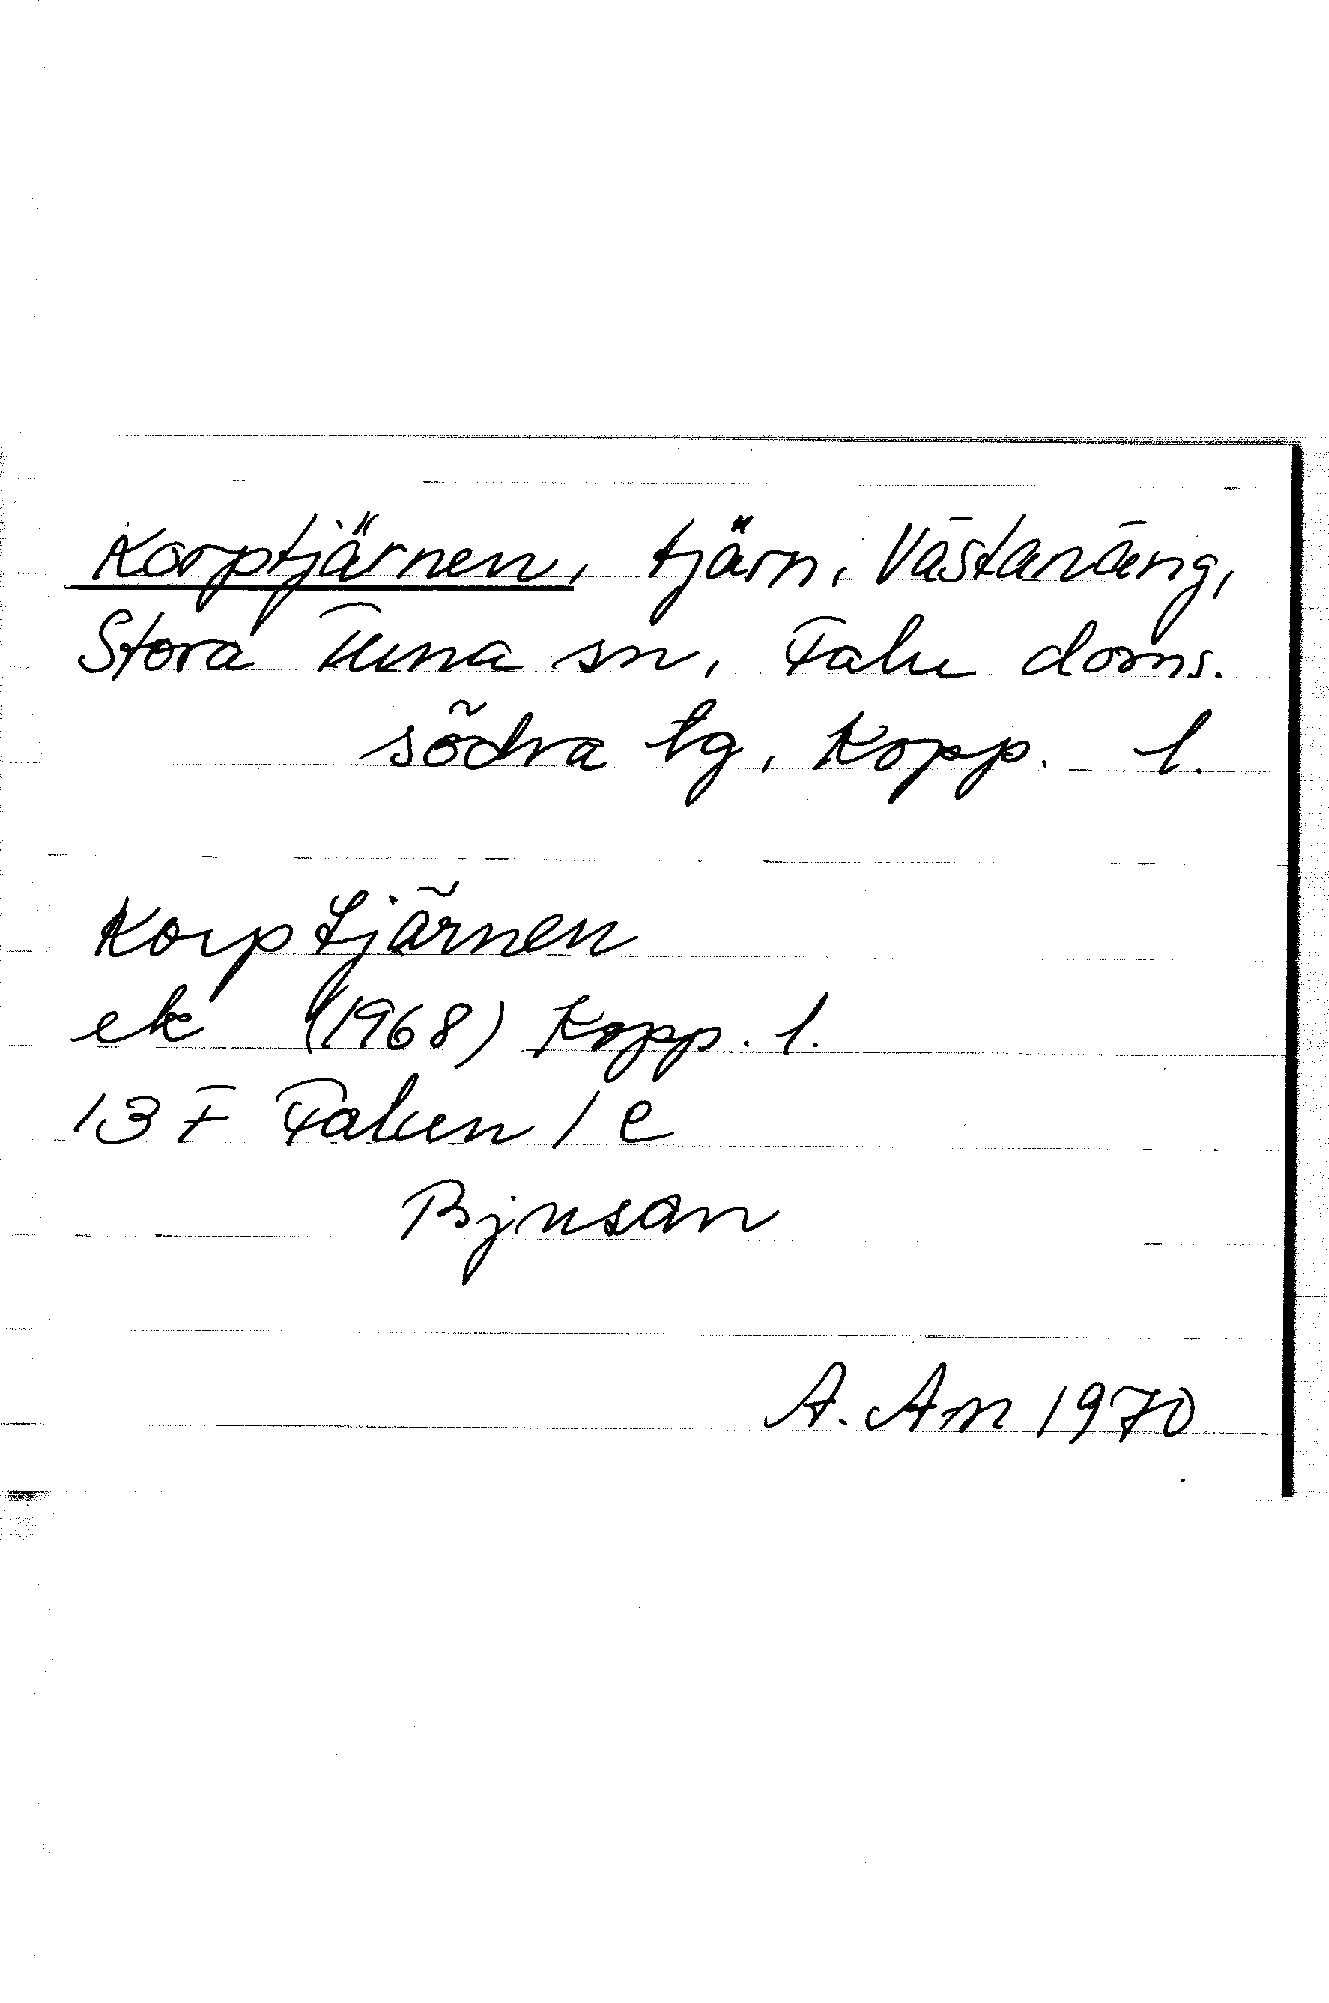 Korptjärnen, tjärn, Västanäng,
Stora Tuna sn, Falu doms.
södra tg, Kopp. l.
Korptjärnen
ek (1968) Kopp. l.
13 F Falun 1 e
Bjusan
A. Am 1970